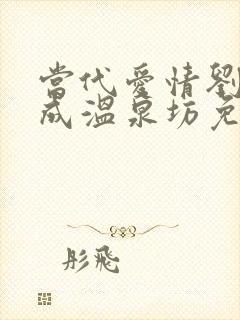 當代愛情劉
成溫泉坊免
彤飛